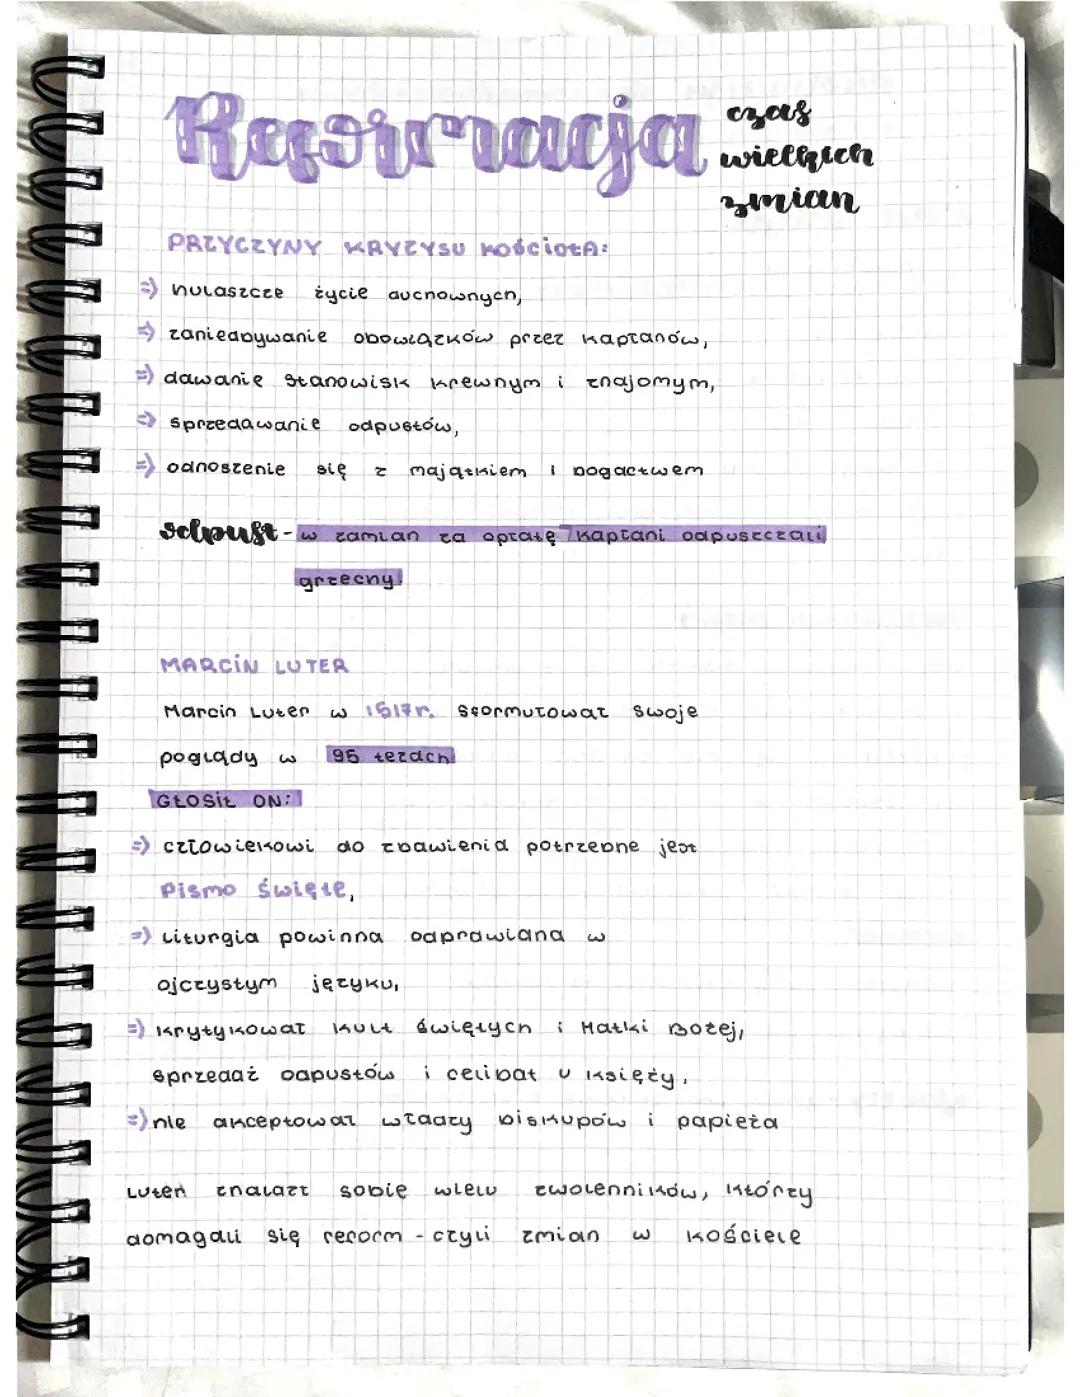 Reformacja
czas
wielkich
zmian
PRZYCZYNY KRYZYSU KOŚCIOŁA:
=> hulaszcze życie duchownych,
=> zaniedbywanie obowiązków przez kapłanów,
=> dawanie stanowisk krewnym i znajomym,
=> sprzedawanie odpustów,
=> odnoszenie się z majątkiem i bogactwem
odpust - w zamian za opłatę kapłani odpuszczali
grzechy.
MARCIN LUTER
Marcin Luter w 1517r. sformułował swoje
poglądy w 95 tezach
GŁOSIŁ ON:
=> człowiekowi do zbawienia potrzebne jest
Pismo Święte,
=> Liturgia powinna odprawiana w
ojczystym języku,
=> krytykował kult świętych i Matki Bożej,
sprzedaż odpustów i celibat u księży,
=> nie akceptował władzy biskupów i papieża
Luter znalazł sobie wielu zwolenników, którzy
domagali się reform - czyli zmian w kościele